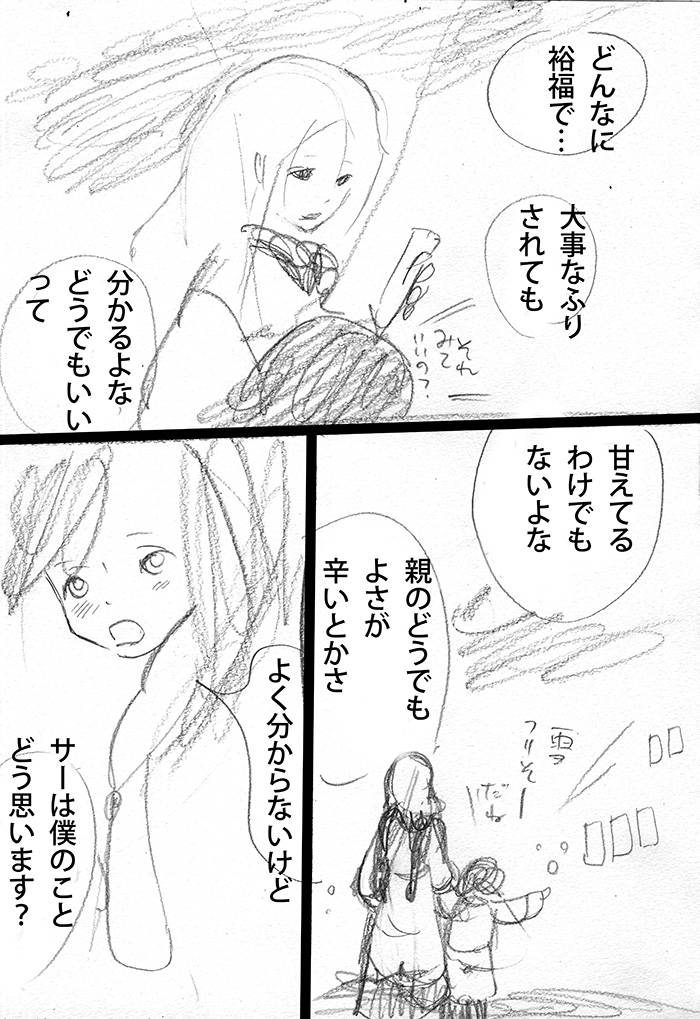 どんなに
裕福で…
大事なふり
されても
それ
みて
いいの?
分かるよな
どうでもいい
って
甘えてる
わけでも
ないよな
親のどうでも
よさが
辛いとかさ
雪
フリそー
だね
よく分からないけど
サーは僕のこと
どう思います?